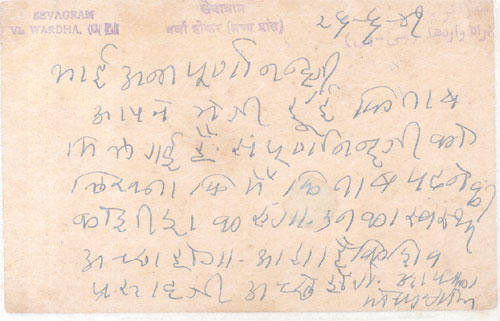 SEVAGRAM
VIA WARDHA, (म. प्र.)
सेवाग्राम
वर्धा होकर (मध्य प्रांत)
भाई अन्नपूर्णानन्दजी
आपने भेजी हुई किताब
मिल गई है. संपूर्णानन्दजी को
लिखना कि मैं किताब पढनेकी
कोशिश करूंगा. उनका स्वास्थ्य
अच्छा होगा. आशा है कि शिव
प्रसादजी अच्छे होंगे. आपका